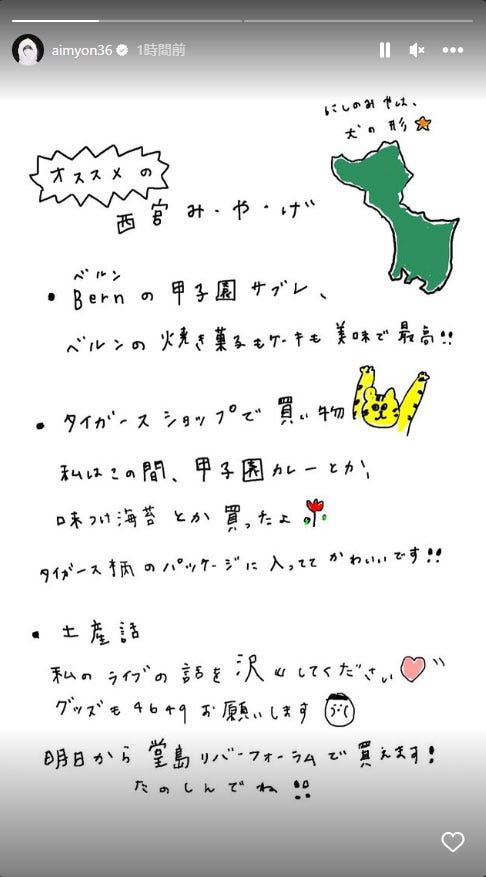 aimyon36 1時間前
にしのみやは、
犬の形
オススメの
西宮み・や・げ
ベルン
• Bernの甲子園サブレ、
ベルンの焼き菓子もケーキも美味で最高!!
• タイガースショップで買い物
私はこの間、甲子園カレーとか、
味つけ海苔とか買ったよ
タイガース柄のパッケージに入っててかわいいです!!
• 土産話
私のライブの話を沢山してください
グッズも4649お願いします
明日から堂島リバーフォーラムで買えます!
たのしんでね!!